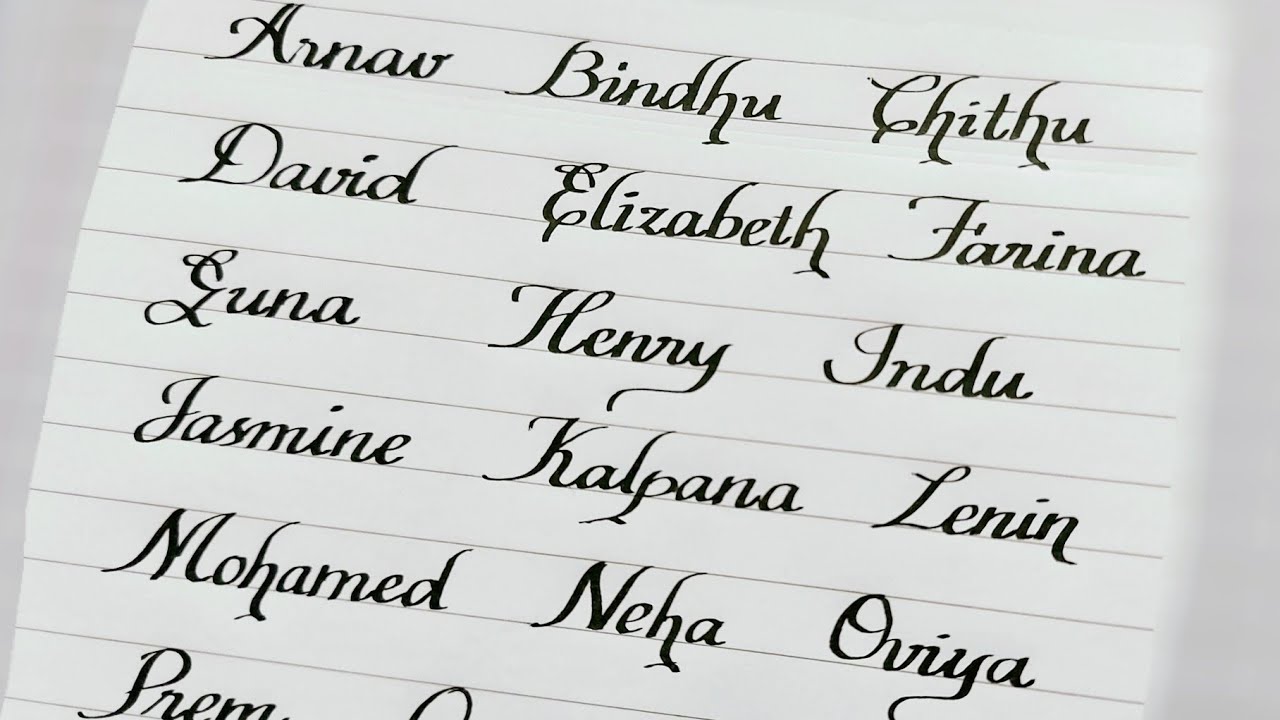 Arnav Bindhu Chithu
David Elizabeth Farina
Guna Henry Indu
Jasmine Kalpana Lenin
Mohamed Neha Oviya
Prem